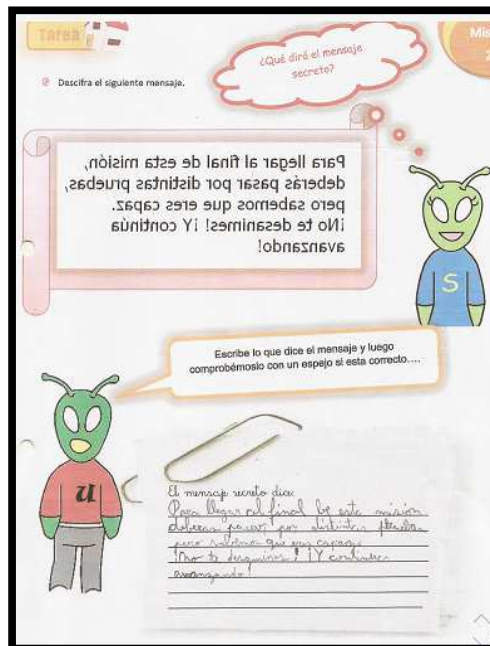 Tarea
Mis
¿Qué dirá el mensaje
secreto?
Descifra el siguiente mensaje.
Para llegar al final de esta misión,
deberás pasar por distintas pruebas,
pero sabemos que eres capaz.
¡No te desanimes! ¡Y continúa
avanzando!
S
Escribe lo que dice el mensaje y luego
comprobémoslo con un espejo si esta correcto....
u
El mensaje secreto dice:
Para llegar al final de esta misión
deberas pasar por distintas
pero sabemos que eres capaz.
¡No te ! ¡Y
avanzando!